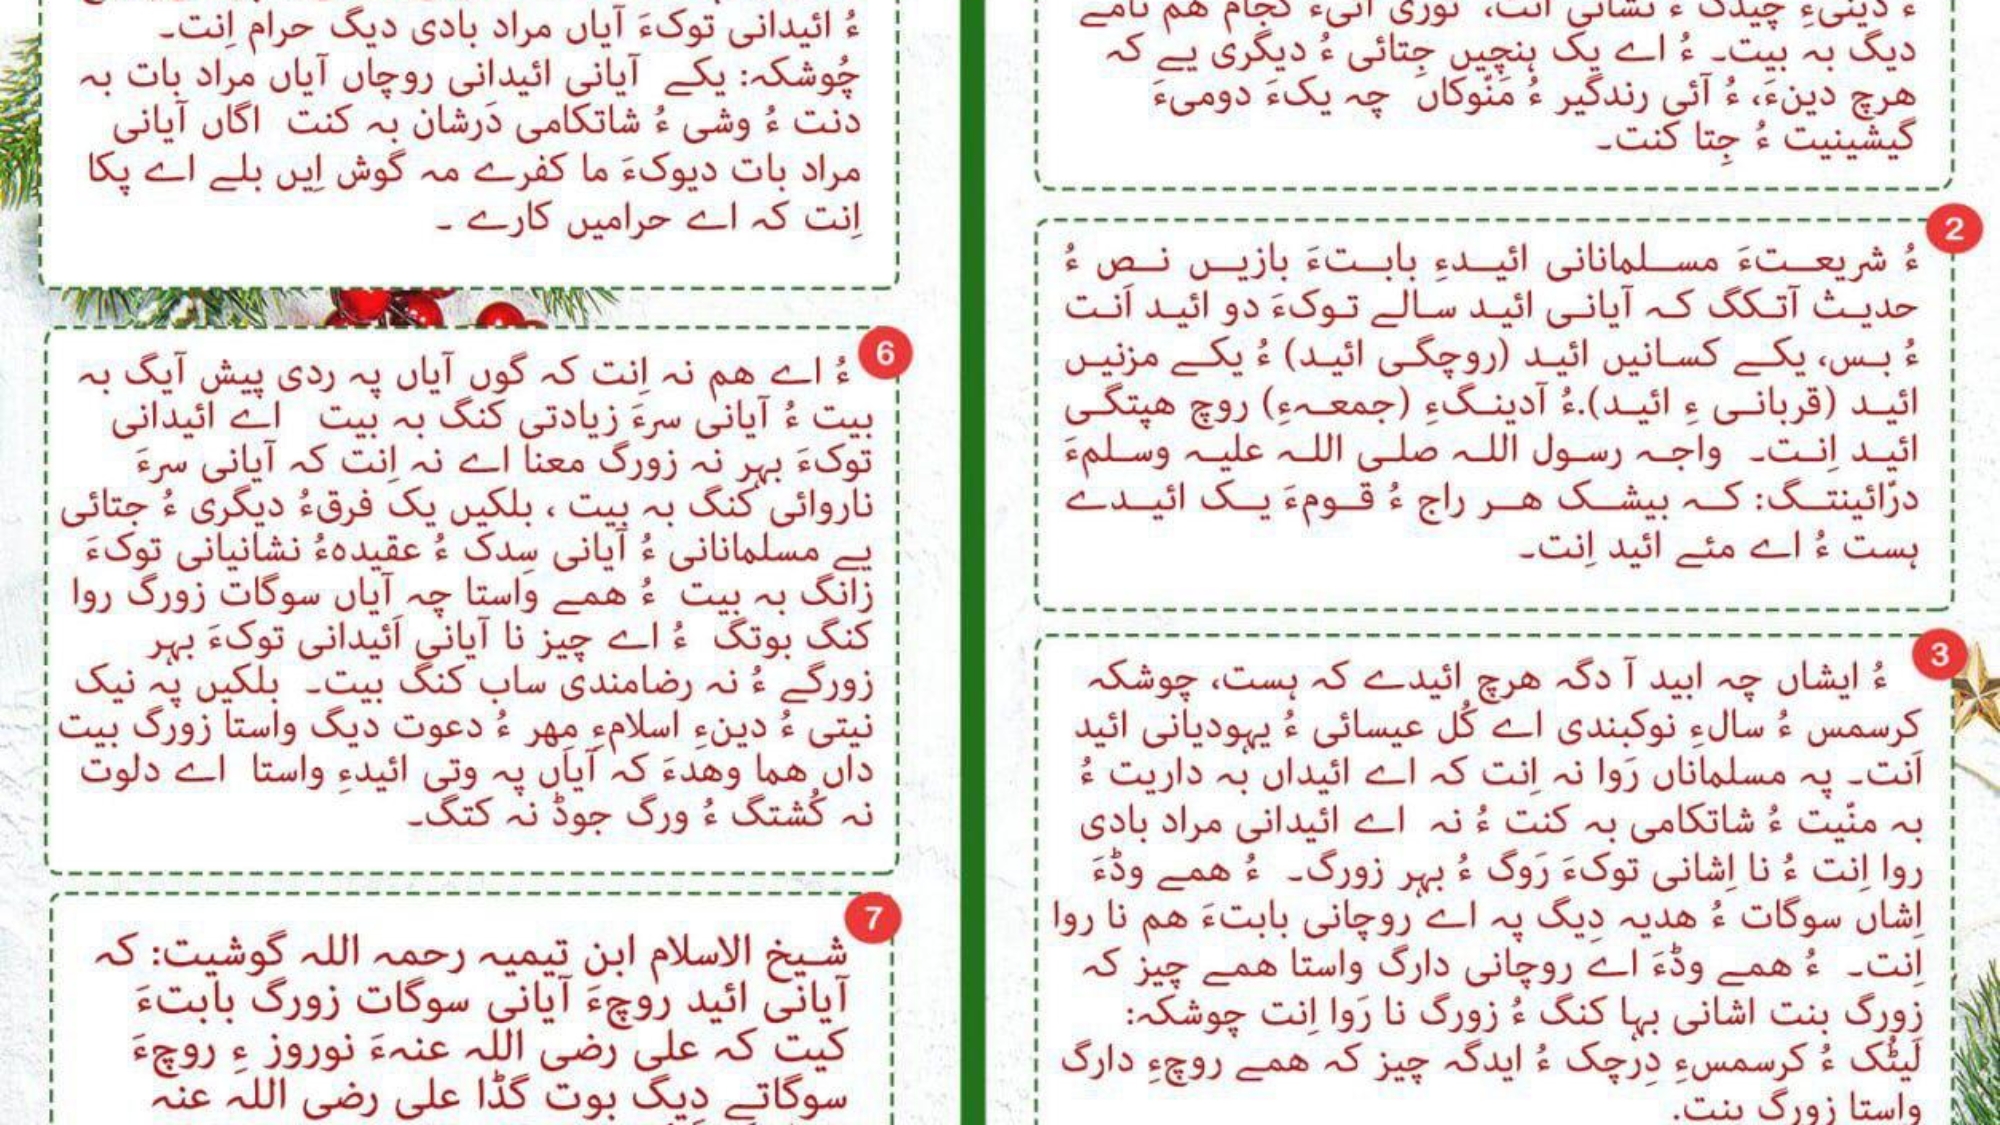 ءُ دینیءِ چیدگ ءُ نشانی انت، توری آئیءَ کجام هم نامے
دیگ بہ بیت۔ ءُ اے یک ہنچیں جِتائی ءُ دیگری یے کہ
هرچ دینءَ، ءُ آئی رندگیر ءُ مَنّوکاں چہ یکءَ دومیءَ
گیشینیت ءُ جِتا کنت۔
2
ءُ شریعتءَ مسلمانانی ائیدءِ بابتءَ بازیں نص ءُ
حدیث آتکگ کہ آیانی ائید سالے توکءَ دو ائید اَنت
ءُ بس، یکے کسانیں ائید (روچگی ائید) ءُ یکے مزنیں
ائید (قربانی ءِ ائید).ءُ آدینگءِ (جمعہءِ) روچ هپتگی
ائید اِنت۔ واجہ رسول اللہ صلی اللہ علیہ وسلمءَ
درّائینتگ: کہ بیشک هر راج ءُ قومءَ یک ائیدے
ہست ءُ اے مئے ائید اِنت۔
3
ءُ ایشاں چہ ابید آ دگہ هرچ ائیدے کہ ہست، چوشکہ
کرسمس ءُ سالءِ نوکبندی اے کُل عیسائی ءُ یہودیانی ائید
اَنت۔ پہ مسلماناں رَوا نہ اِنت کہ اے ائیداں بہ داریت ءُ
بہ منّیت ءُ شاتکامی بہ کنت ءُ نہ اے ائیدانی مراد بادی
روا اِنت ءُ نا اِشانی توکءَ رَوگ ءُ بہر زورگ۔ ءُ همے وڈءَ
اِشاں سوگات ءُ هدیہ دِیگ پہ اے روچانی بابتءَ هم نا روا
اِنت۔ ءُ همے وڈءَ اے روچانی دارگ واستا همے چیز کہ
زورگ بنت اشانی بہا کنگ ءُ زورگ نا رَوا اِنت چوشکہ:
لَیٹُک ءُ کرسمسءِ دِرچک ءُ ایدگہ چیز کہ همے روچءِ دارگ
واستا زورگ بنت.
ءُ ائیدانی توکءَ آیاں مراد بادی دیگ حرام اِنت۔
چُوشکہ: یکے آیانی ائیدانی روچاں آیاں مراد بات بہ
دنت ءُ وشی ءُ شاتکامی دَرشان بہ کنت اگاں آیانی
مراد بات دیوکءَ ما کفرے مہ گوش اِیں بلے اے پکا
اِنت کہ اے حرامیں کارے ۔
6
ءُ اے هم نہ اِنت کہ گوں آیاں پہ ردی پیش آیگ بہ
بیت ءُ آیانی سرءَ زیادتی کنگ بہ بیت اے ائیدانی
توکءَ بہر نہ زورگ معنا اے نہ اِنت کہ آیانی سرءَ
ناروائی کنگ بہ بیت ، بلکیں یک فرقءُ دیگری ءُ جتائی
یے مسلمانانی ءُ آیانی سِدک ءُ عقیدہءُ نشانیانی توکءَ
زانگ بہ بیت ءُ همے واستا چہ آیاں سوگات زورگ روا
کنگ بوتگ ءُ اے چیز نا آیانی اَئیدانی توکءَ بہر
زورگے ءُ نہ رضامندی ساب کنگ بیت۔ بلکیں پہ نیک
نیتی ءُ دینءِ اسلامءِ مهر ءُ دعوت دیگ واستا زورگ بیت
داں هما وهدءَ کہ آیاں پہ وتی ائیدءِ واستا اے دلوت
نہ کُشتگ ءُ ورگ جوڈ نہ کتگ۔
7
شیخ الاسلام ابن تیمیہ رحمہ اللہ گوشیت: کہ
آیانی ائید روچءَ آیانی سوگات زورگ بابتءَ
کیت کہ علی رضی اللہ عنہءَ نوروز ءِ روچءَ
سوگاتے دِیگ بوت گڈا علی رضی اللہ عنہ